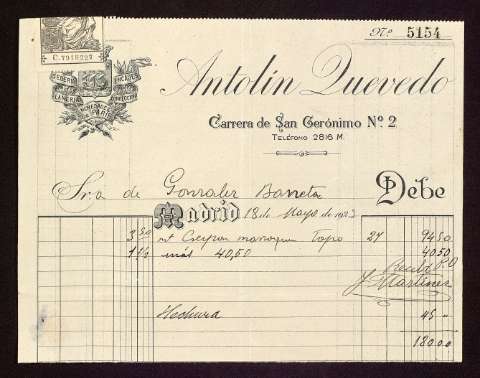 Nº 5154
C.7918227
SEDERIA
ENCAJES
LANERIA
CONFECCION
Antolín Quevedo
Carrera de San Gerónimo Nº 2
TELÉFONO 2816 M.
Sra de Gonzalez Barreta Debe
Madrid 18 de Mayo de 1923
3 50 mt Crespon marroquin Tapio 27 94 50
1 ½ más 40,50 40 50
Recibí P.O
J Martinez
Hechura 45 "
180 00